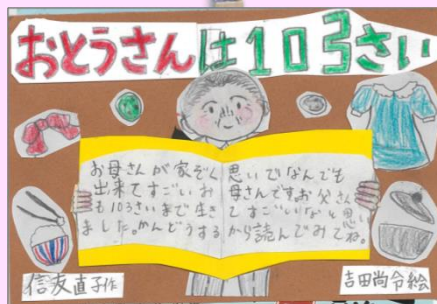 おとうさんは103さい
お母さんが家ぞく思いでなんでも
出来てすごいお母さんです。お父さん
も103さいまで生きてすごいなと思い
ました。かんどうするから読んでみてね。
信友直子作
吉田尚令絵